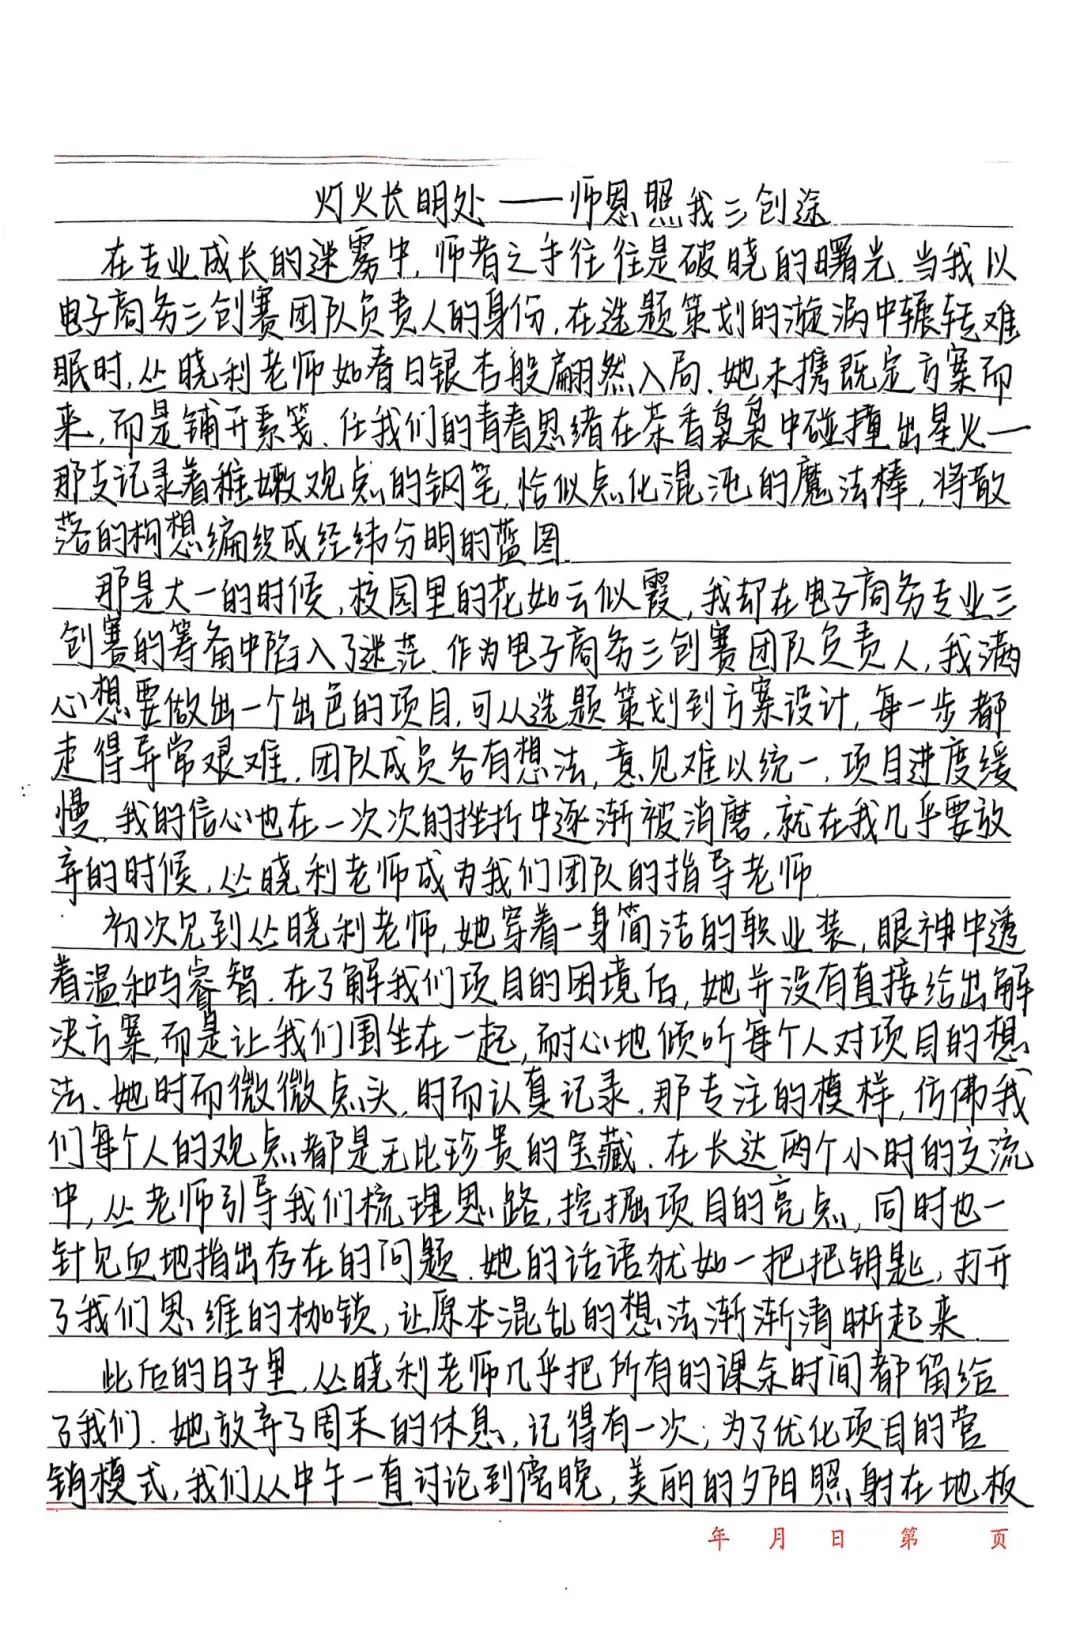 灯火长明处——师恩照我三创途
在专业成长的迷雾中,师者之手往往是破晓的曙光.当我以
电子商务三创赛团队负责人的身份,在选题策划的漩涡中辗转难
眠时,丛晓利老师如春日银杏般翩然入局.她未携既定方案而
来,而是铺开素笺.任我们的青春思绪在茶香袅袅中碰撞出星火—
那支记录着稚嫩观点的钢笔,恰似点化混沌的魔法棒,将散
落的构想编织成经纬分明的蓝图.
那是大一的时候,校园里的花如云似霞,我却在电子商务专业三
创赛的筹备中陷入了迷茫.作为电子商务三创赛团队负责人,我满
心想要做出一个出色的项目,可从选题策划到方案设计,每一步都
走得异常艰难.团队成员各有想法,意见难以统一,项目进度缓
慢.我的信心也在一次次的挫折中逐渐被消磨,就在我几乎要放
弃的时候,丛晓利老师成为我们团队的指导老师.
初次见到丛晓利老师,她穿着一身简洁的职业装,眼神中透
着温和与睿智.在了解我们项目的困境后,她并没有直接给出解
决方案,而是让我们围坐在一起,耐心地倾听每个人对项目的想
法.她时而微微点头,时而认真记录,那专注的模样,仿佛我
们每个人的观点都是无比珍贵的宝藏.在长达两个小时的交流
中,丛老师引导我们梳理思路,挖掘项目的亮点,同时也一
针见血地指出存在的问题.她的话语犹如一把把钥匙,打开
了我们思维的枷锁,让原本混乱的想法渐渐清晰起来.
此后的日子里,丛晓利老师几乎把所有的课余时间都留给
了我们.她放弃了周末的休息,记得有一次;为了优化项目的营
销模式,我们从中午一直讨论到傍晚,美丽的夕阳照射在地板
年 月 日 第 页